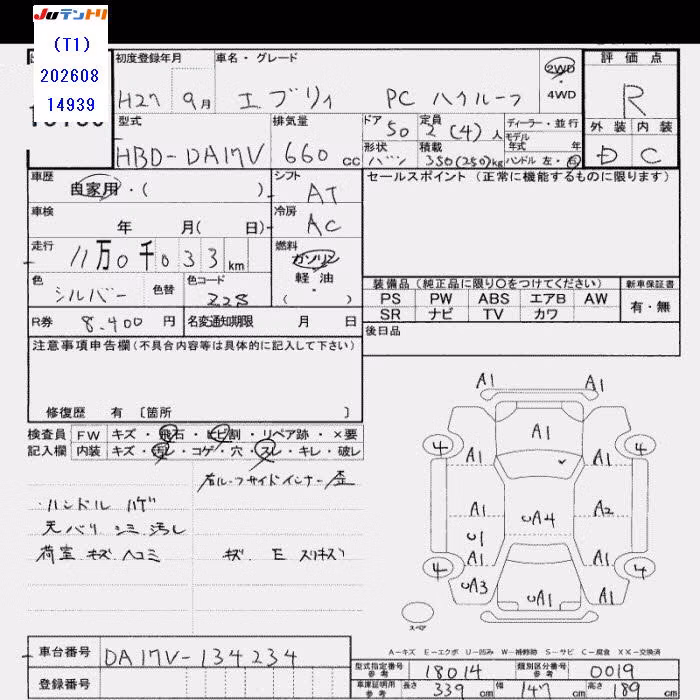 Juテントリ
(T1)
202608
14939
初度登録年月 車名・グレード 2WD 4WD 評価点
H27 9月 エブリイ PC ハイルーフ R
型式 排気量 ドア 50 定員 2(4)人 ディーラー・並行 外装 内装
モデル 年式 年
HBD-DA17V 660cc 形状 バン 積載 350(250)kg ハンドル 左・右 D C
車歴 自家用・( ) シフト AT セールスポイント (正常に機能するものに限ります)
車検 年 月( 日) 冷房 AC
走行 11万0千033km 燃料 ガソリン 軽油 ( )
色 シルバー 色替 色コード Z2S 装備品(純正品に限り○をつけてください) 新車保証書
PS PW ABS エアB AW 有・無
SR ナビ TV カワ
R券 8,400円 名変通知期限 月 日 後日品
注意事項申告欄(不具合内容等は具体的に記入して下さい)
修復歴 有〔箇所 〕
検査員 FW キズ・飛石・ヒビ割・リペア跡・×要
記入欄 内装 キズ・汚レ・コゲ・穴・スレ・キレ・破レ
右ルーフサイドインナー歪
ハンドル ハゲ
天バリ シミ 汚レ
荷室 キズ ヘコミ キズ E スリキズ
A1 A1
A1
4 4
A1 A1
A1 A2
UA4
U1
A1 A1
4 4
UA3 UA1 A1
スペア
A－キズ E－エクボ U－凹み W－補修跡 S－サビ C－腐食 XX－交換済
車台番号 DA17V-134234
型式指定番号 参考 18014 類別区分番号 参考 0019
登録番号
車庫証明用 参考 長さ 339cm 幅 147cm 高さ 189cm